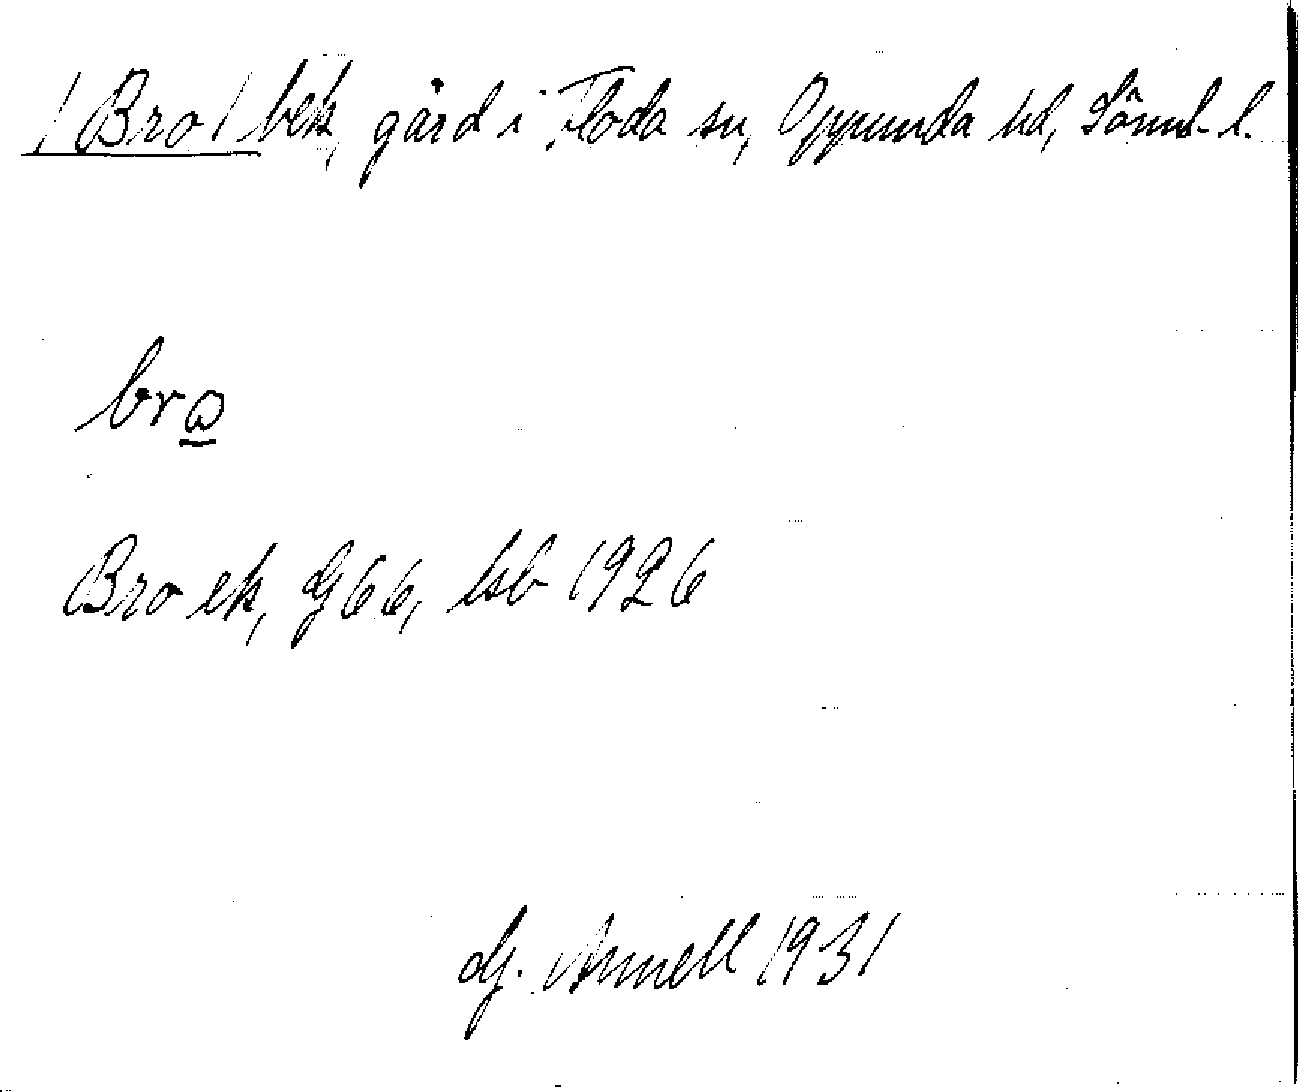 /Bro/bek, gård i Floda sn, Oppunda hd, Söml. l.
bro
Bro ek, G66, lsb 1926
G. Annell 1931